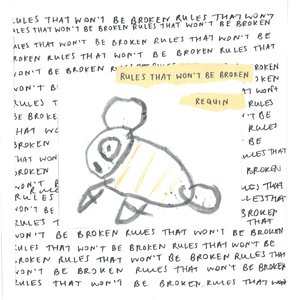 RULES THAT WON'T BE BROKEN RULES THAT WON'T
RULES THAT WON'T BE BROKEN RULES THAT WON'T
THAT WON'T BE BROKEN RULES THAT WON'T BE BROKEN
ROKEN RULES THAT WON'T BE BROKEN RULES THAT
WON'T BE BROKEN RULES
RULES THAT WON'T BE BROKEN
RULES THAT WON'T
BE BROKEN
REQUIN
RULES
RULES THA
BE
THAT WO
RULES THAT
BROKEN
BROKEN
WON'T B
RULES
RULES
LESTHAT
WON'T BE
BROKEN
RULES THAT WON'T BE
THAT
WON'T BE BROKEN RULES THAT WON'T BE BROKEN
RULES THAT WON'T BE BROKEN RULES THAT WON'T BE
ROKEN RULES THAT WON'T BE BROKEN RULES THA
WON'T BE BROKEN RULES THAT WON'T BE BROKEN